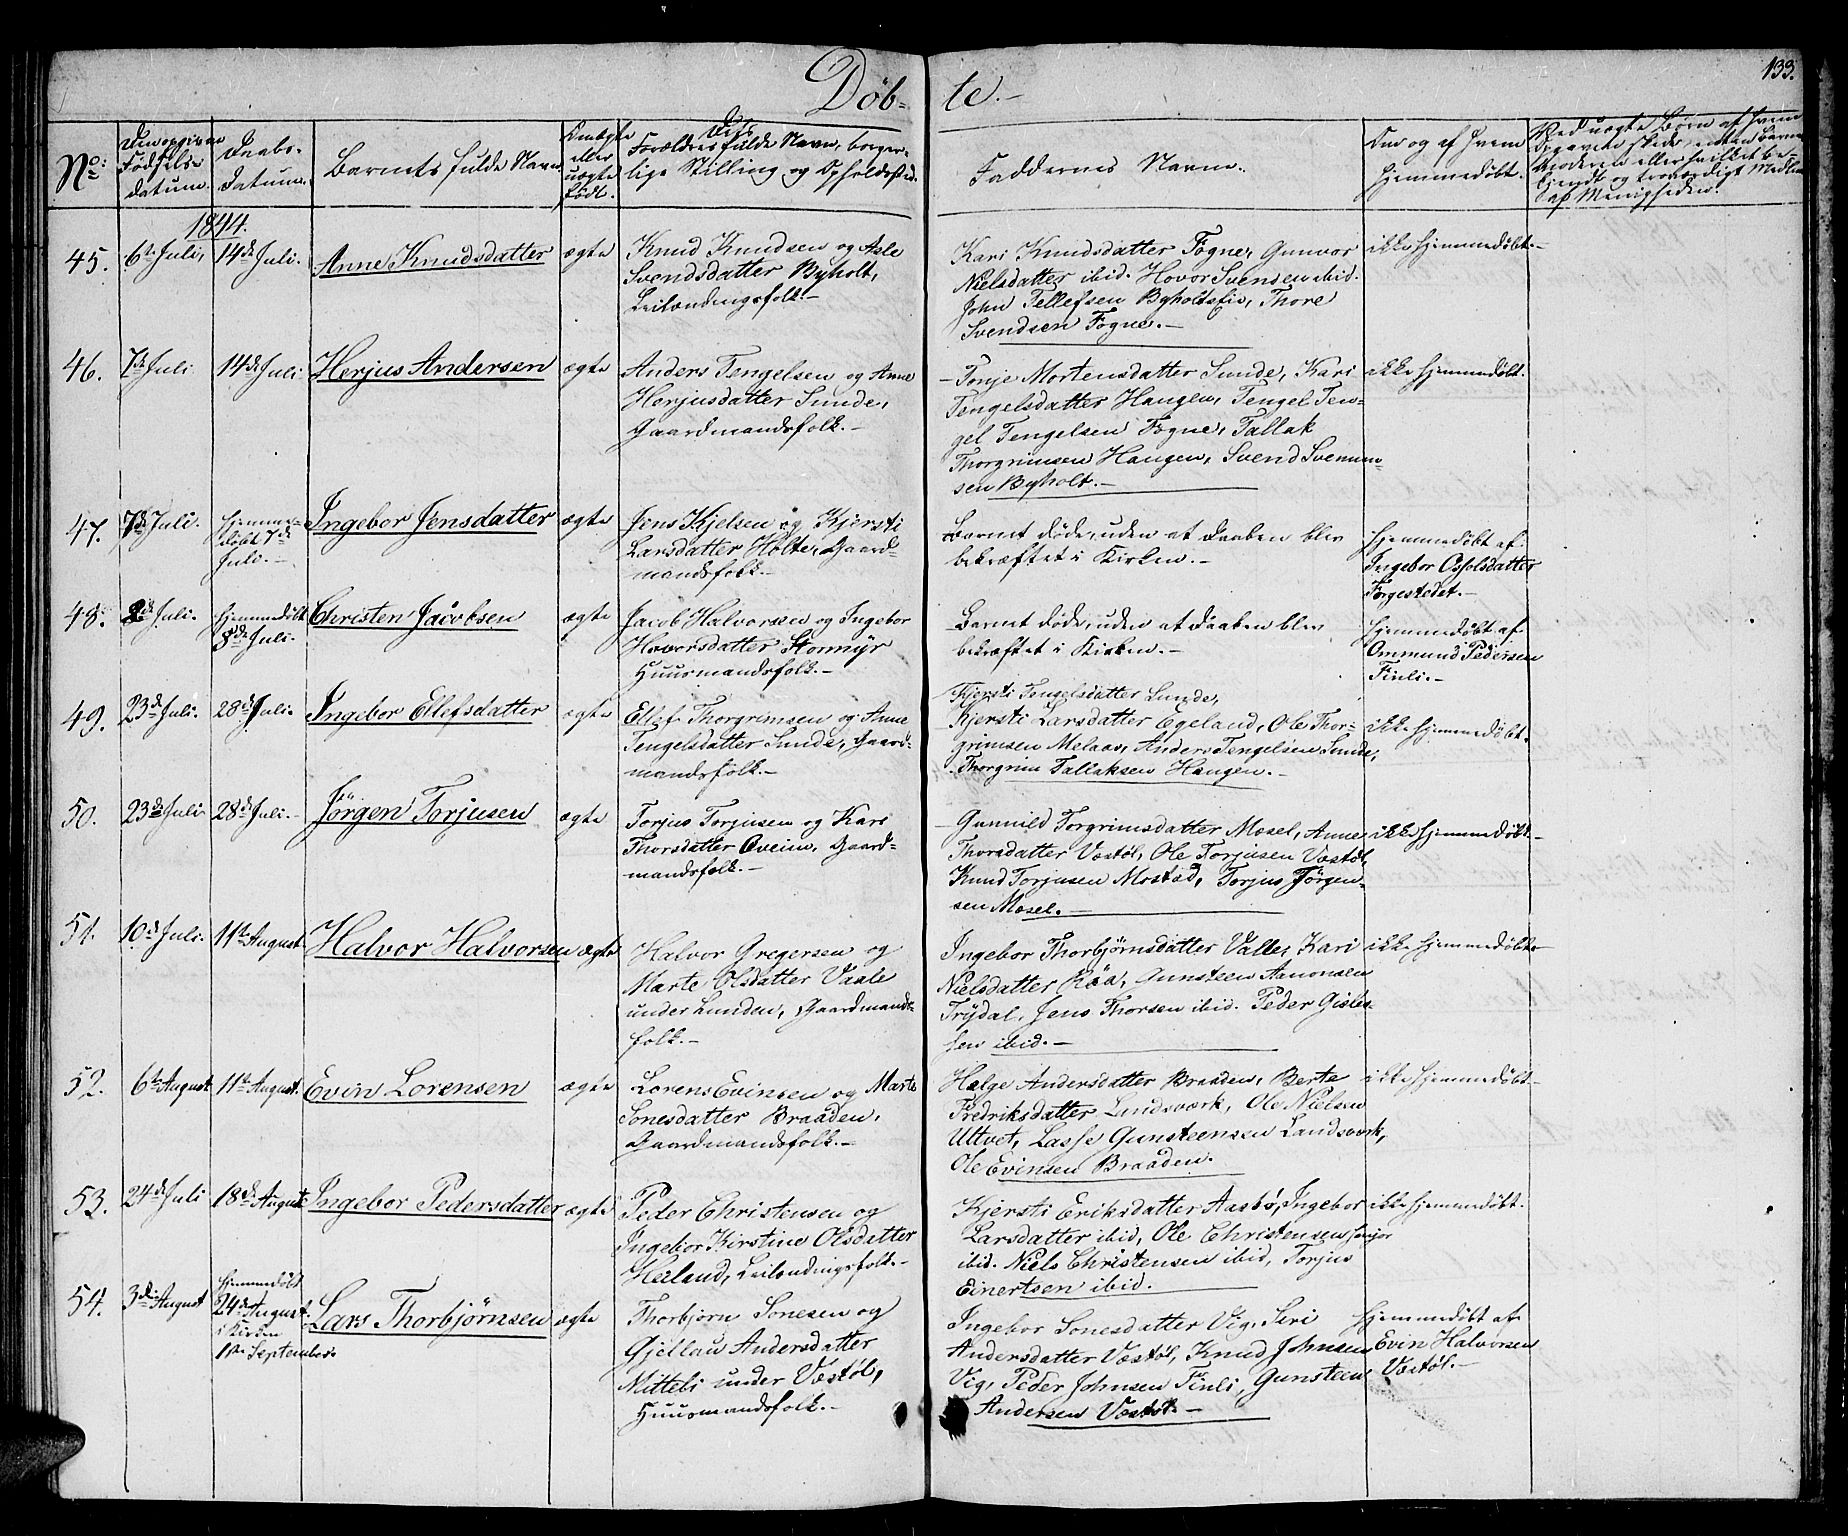 Døb- te.-
133.
No:
Den opgivne Fødsels- datum.
Daabs- datum.
Barnets fulde Navn.
Om ægte eller uægte født.
Dets Forældres fulde Navn, borger-
lige Stilling og Opholdssted.
Faddernes Navne.
Om og af hvem
hjemmedøbt.
Ved uægte Børn af hvem
Opgavete skede, enten Barne-
Moderen eller hvilket be-
kjendt og troværdigt Medlem
af Menigheden.
1844.
45. 6te Juli, 14de Juli. Anne Knudsdatter ægte
Knud Knudsen og Asle
Svendsdatter Byholt,
Leilændingsfolk.-
Kari Knudsdatter Fogne, Gunvor
Nielsdatter ibid. Hovor Svendsen ibid.
John Tellefsen Byholdsfie, Thore
Svendsen Fogne.-
ikke hjemmedøbt.-
46. 7de Juli 14de Juli Herjus Andersen ægte
Anders Tengelsen og Anne
Herjusdatter Sunde,
Gaardmandsfolk.-
Tonje Mortensdatter Sunde, Kari
Tengelsdatter Haugen, Tengel Ten-
gel Tengelsen Fogne, Tallak
Thorgrimsen Haugen, Svend Svenum-
sen Byholt.-
ikke hjemmedøbt.
47. 7de Juli. Hjemme-
døbt 7de
Juli.-
Ingebor Jensdatter ægte
Jens Kjelsen og Kjersti
Larsdatter Holte, Gaard-
mandsfolk.-
Barnet døde, uden at Daaben blev
bekræftet i Kirken.-
Hjemmedøbt af
Ingebor Osfolsdatter
Torgestedet.-
48. 8de Juli. Hjemmedøbt
8de Juli.
Christen Jacobsen ægte
Jacob Halvorsen og Ingebor
Hovorsdatter Stormyr
Huusmandsfolk.-
Barnet døde, uden at Daaben blev
bekræftet i Kirken.-
Hjemmedøbt af
Ommund Pedersen
Finli.-
49. 23de Juli. 28de Juli. Ingebor Ellefsdatter ægte
Ellef Thorgrimsen og Anne
Tengelsdatter Sunde, Gaard-
mandsfolk.-
Kjersti Tengelsdatter Sunde,
Kjersti Larsdatter Egeland, Ole Thor-
grimsen Melaas, Anders Tengelsen Sunde,
Thorgrim Tallaksen Haugen.-
ikke hjemmedøbt.
50. 23de Juli 28de Juli.- Jørgen Torjusen ægte
Torjus Torjusen og Kari
Thorsdatter Oveim, Gaard-
mandsfolk.-
Gunnild Torgrimsdatter Mosel, Anne
Thorsdatter Væstøl, Ole Torjusen Væstøl,
Knud Torjusen Mostad, Torjus Jørgen-
sen Mosel.-
ikke hjemmedøbt.-
51. 10de Juli. 11te August Halvor Halvorsen ægte
Halvor Gregersen og
Marte Olsdatter Vaale
under Lunden, Gaardmands-
folk.-
Ingebor Thorbjørnsdatter Valle, Kari
Nielsdatter Råa, Gunsteen Aanonsen
Trydal, Jens Thorsen ibid. Peder Gisle-
sen ibid.-
ikke hjemmedøbt.-
52. 6te August 11te August. Evin Lorensen ægte
Lorens Evinsen og Marte
Sonesdatter Braaden,
Gaardmandsfolk.-
Helge Andersdatter Braaden, Berte
Fredriksdatter Lundsværk, Ole Nielsen
Utvet, Lasse Gunsteensen Landsværk,
Ole Evinsen Braaden.
ikke hjemmedøbt.-
53. 24de Juli 18de August Ingebor Pedersdatter ægte
Peder Christensen og
Ingebor Kirstine Olsdatter
Heiland, Leilændingsfolk.-
Kjersti Eriksdatter Aasbø, Ingebor
Larsdatter ibid, Ole Christensen senjor
ibid. Niels Christensen ibid, Torjus
Einertsen ibid.
ikke hjemmedøbt.
54. 3die August Hjemmedøbt
24de August
i Kirken
1ste September.
Lars Thorbjørnsen ægte
Thorbjørn Sonesen og
Gjellau Andersdatter
Mittebi under Væstøl,
Huusmandsfolk.-
Ingebor Sonesdatter Vig, Siri
Andersdatter Væstøl, Knud Johnsen
Vig, Peder Johnsen Finli, Gunsteen
Andersen Væstøl.-
Hjemmedøbt af
Evin Halvorsen
Væstøl.-